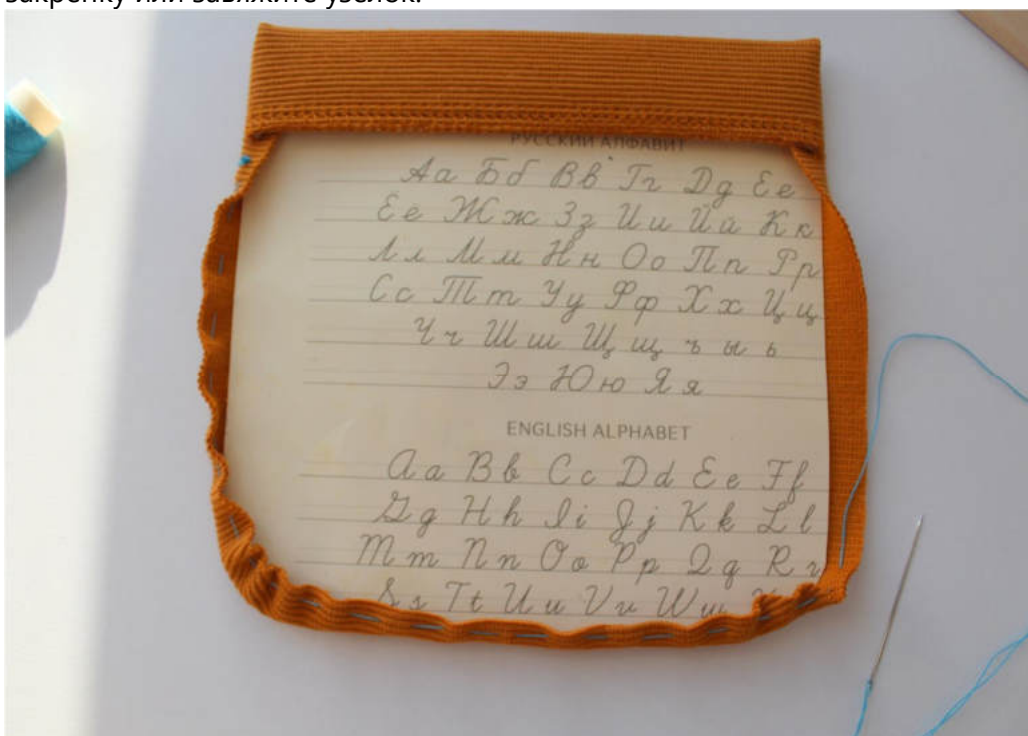 закрепку или завяжите узелок.
РУССКИЙ АЛФАВИТ
Аа Бб Вв Гг Дд Ее
Ёё Жж Зз Ии Йй Кк
Лл Мм Нн Оо Пп Рр
Сс Тт Уу Фф Хх Цц
Чч Шш Щщ ъ ы ь
Ээ Юю Яя
ENGLISH ALPHABET
Aa Bb Cc Dd Ee Ff
Gg Hh Ii Jj Kk Ll
Mm Nn Oo Pp Qq Rr
Ss Tt Uu Vv Ww